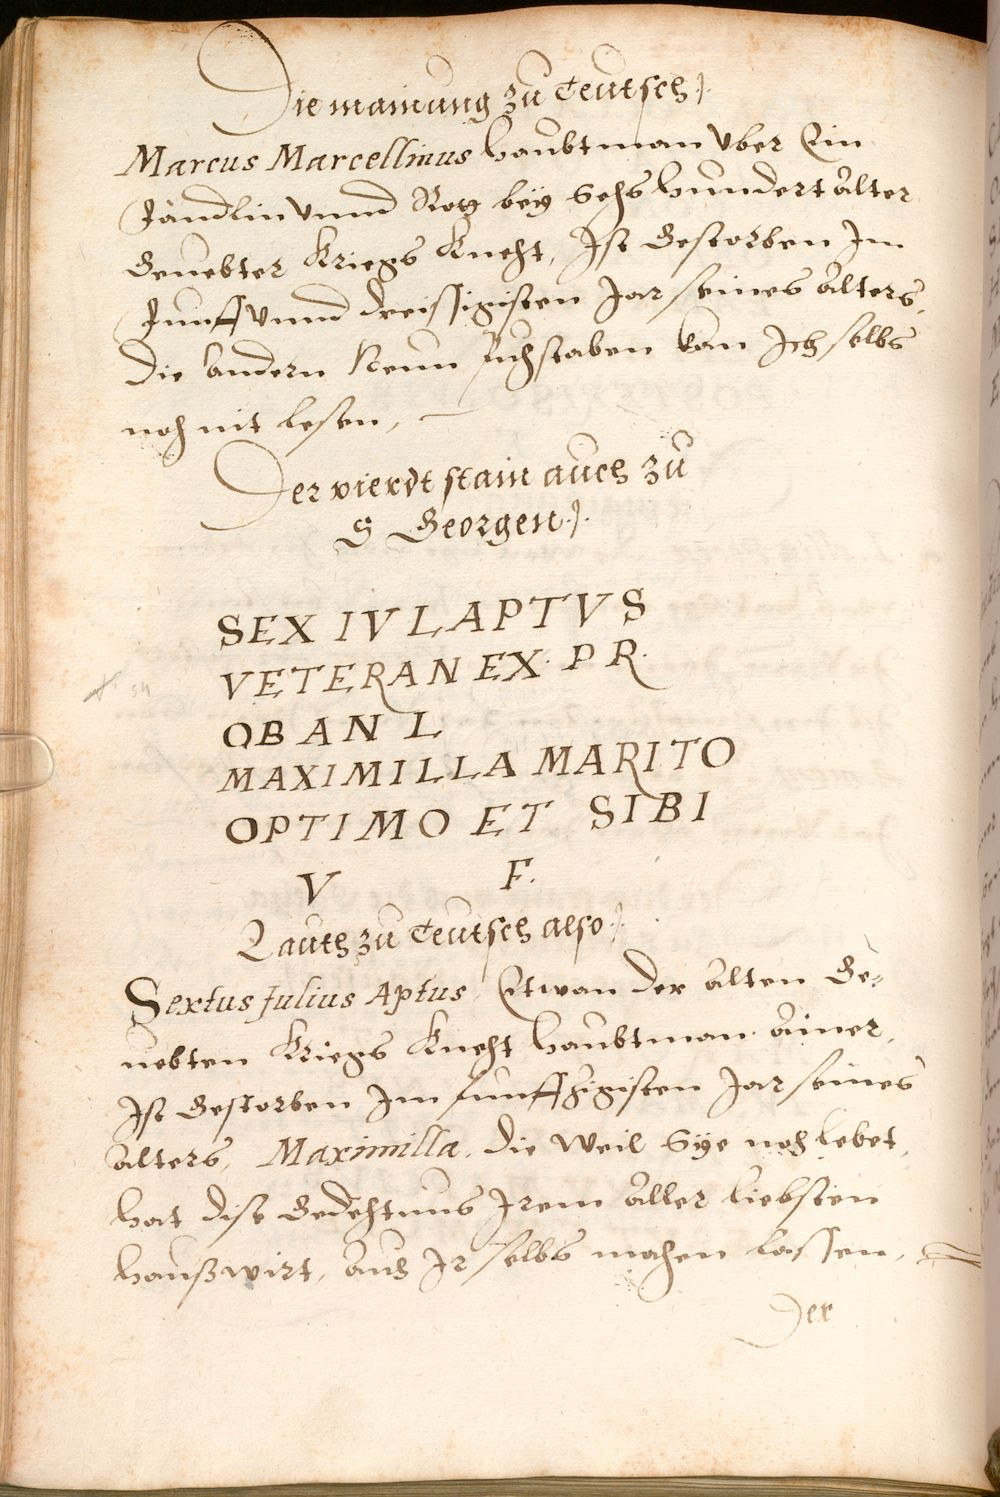 Die mainung zu Teutsch
Marcus Marcellinus haubtman vber Ein
Fändlin vnnd Rott bey Sechs hundert alter
Geuebter Kriegs Knecht, Ist Gestorben Im
Funff vnnd dreissigisten Jar seines alters,
Die andern Neun Buchstaben kan Ich selbs
noch nit lesen,
Der vierdt stain auch zu
S Georgen
SEX IVL APTVS
VETERAN EX· PR·
OB AN L
MAXIMILLA MARITO
OPTIMO ET SIBI
V F.
Lauth zu Teutsch also
Sextus Julius Aptus, Etwan der alten Ge-
uebten Kriegs Knecht haubtman ainer,
Ist Gestorben Im funffzigisten Jar seines
alters, Maximilla, die weil Sye noch lebet,
hat dise Gedechtnus Irem aller liebsten
haußwirt, auch Ir selbs machen lassen,
Der